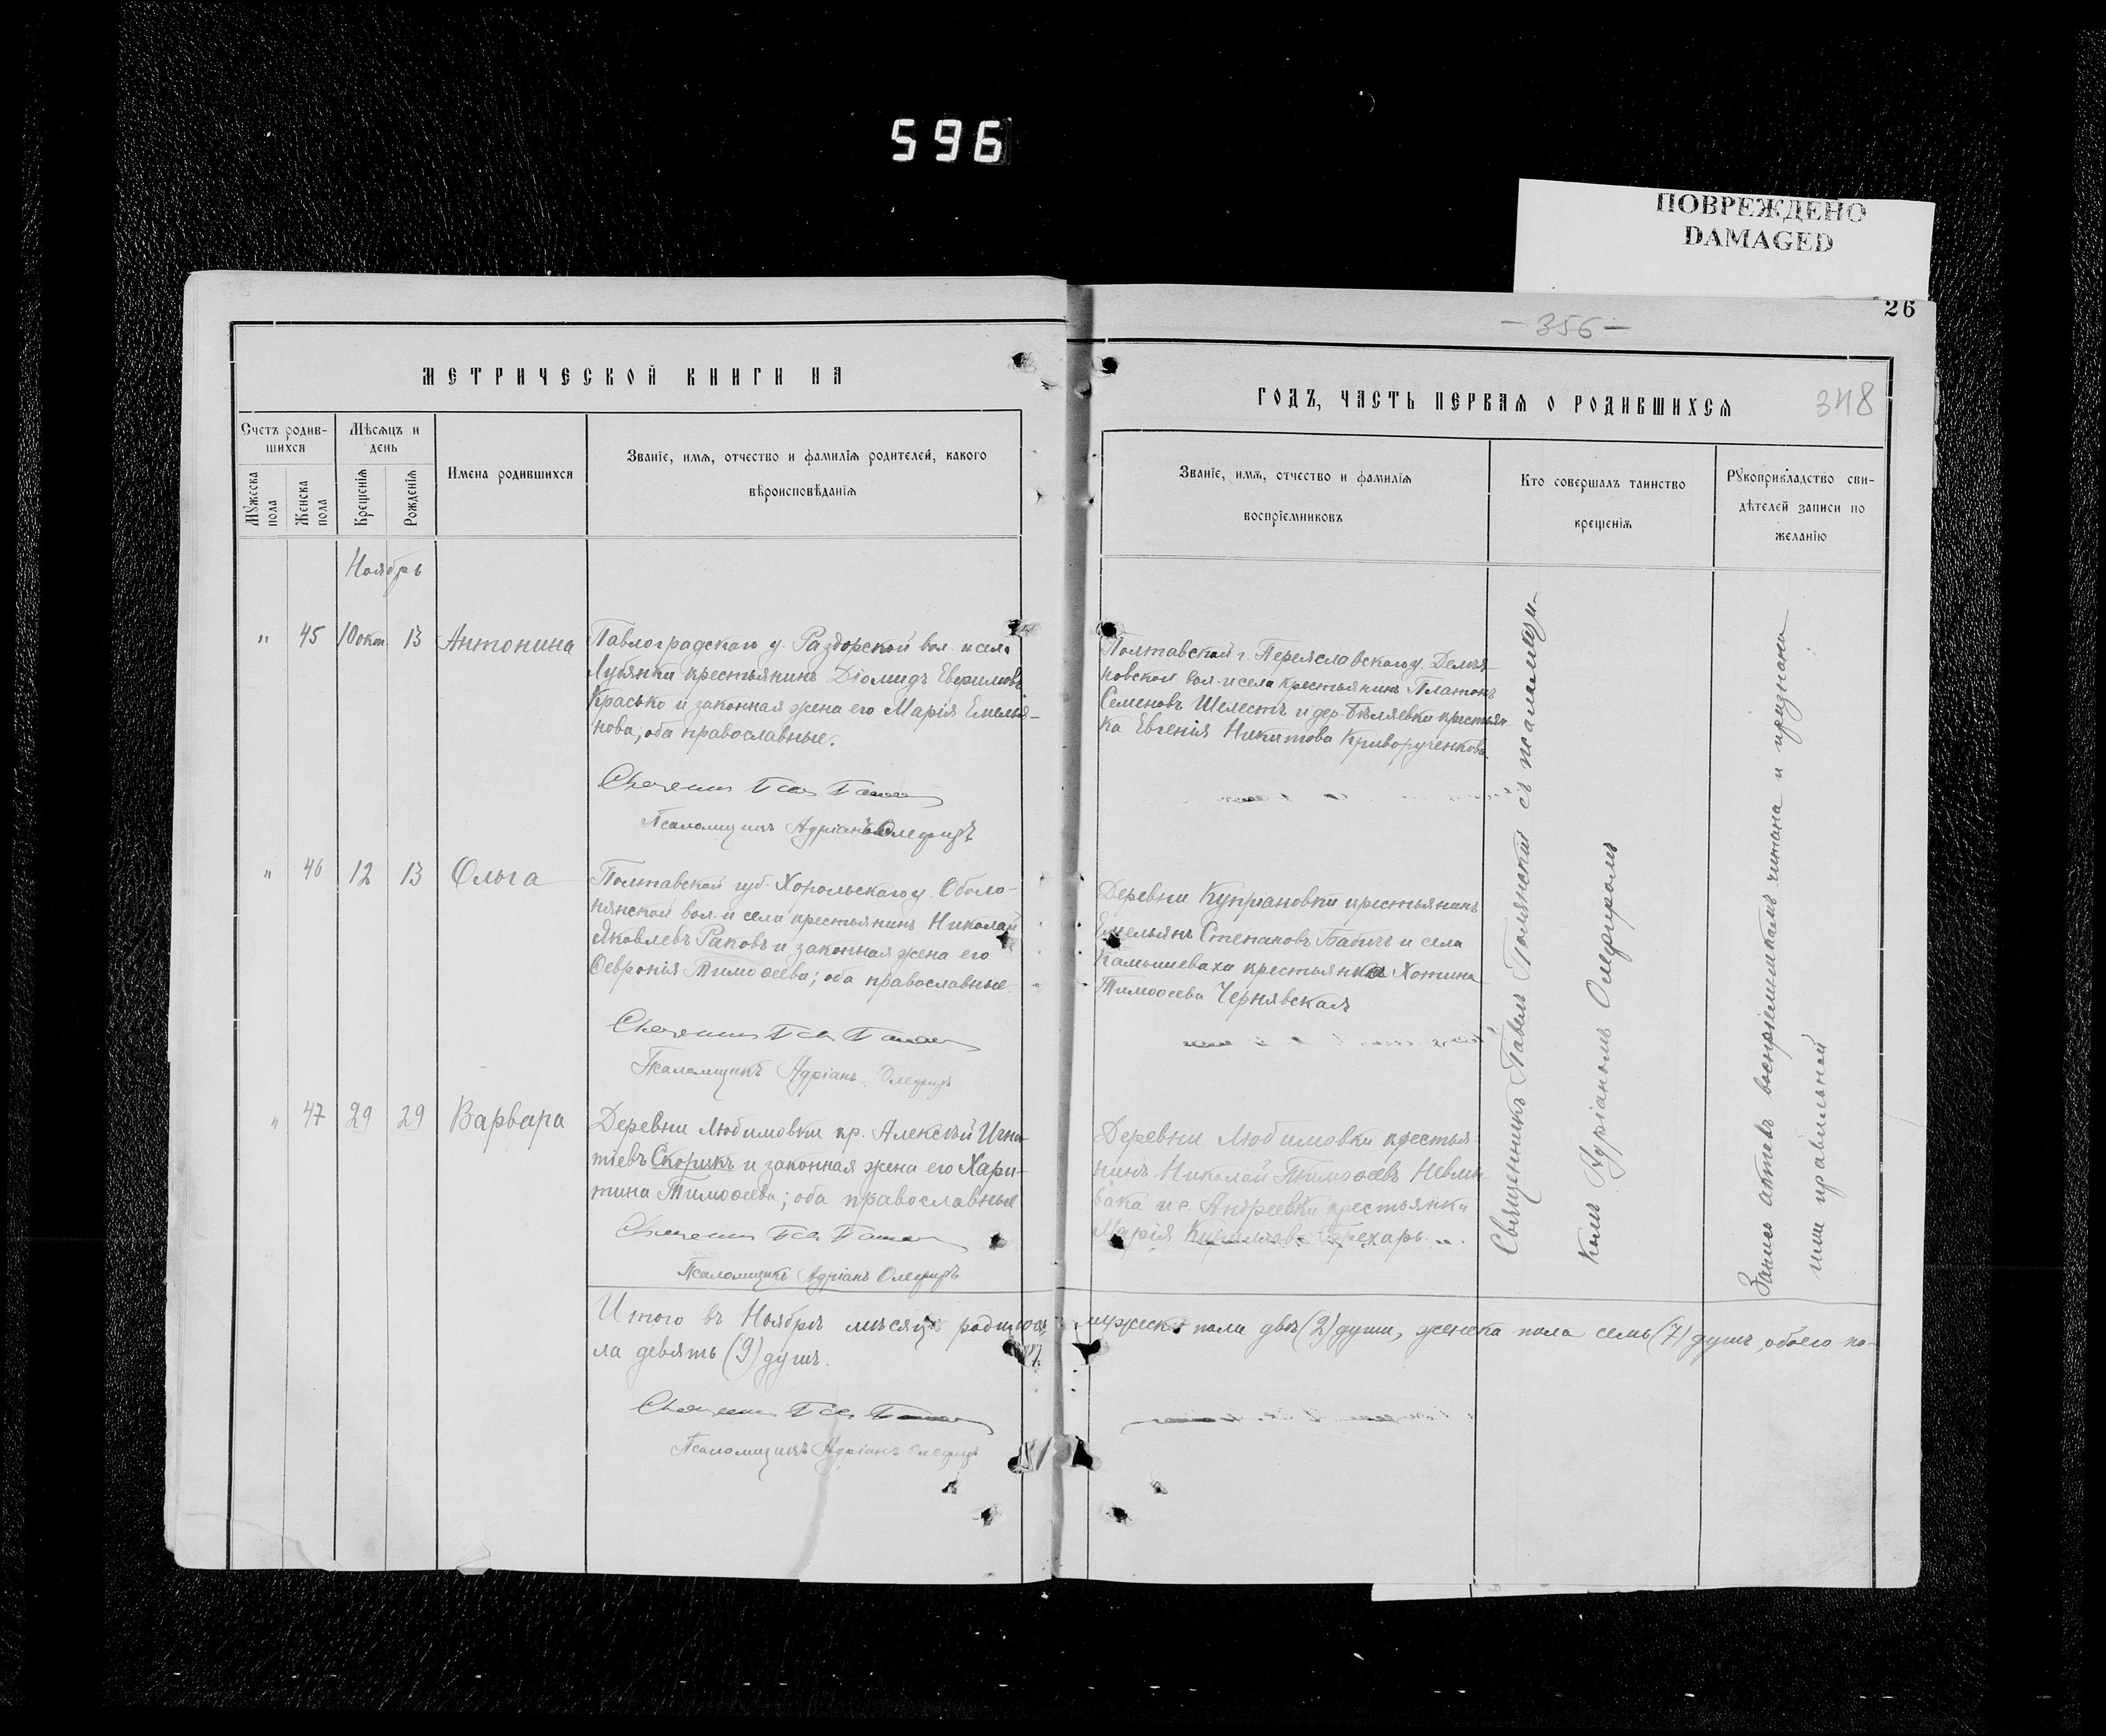 596
ПОВРЕЖДЕНО
DAMAGED
26
— 356 —
348
МЕТРИЧЕСКОЙ КНИГИ НА
ГОДЪ, ЧАСТЬ ПЕРВАЯ О РОДИВШИХСЯ
Счетъ родив-
шихся
Мужеска
пола
Женска
пола
Мѣсяцъ и
день
Крещенія
Рожденія
Имена родившихся
Званіе, имя, отчество и фамилія родителей, какого
вѣроисповѣданія
Званіе, имя, отчество и фамилія
воспріемниковъ
Кто совершалъ таинство
крещенія
Рукоприкладство сви-
дѣтелей записи по
желанію
Ноябрь
" 45 10 окт. 13 Антонина
Павлоградскаго у. Раздорской вол. и села
Лубянки крестьянинъ Діомидъ Евфимовъ
Красько и законная жена его Марія Емелья-
нова, оба православные.
Псаломщикъ Адріанъ Олефиръ
Полтавской г. Переяславскаго у. Демья-
новской вол. и села крестьянинъ Платонъ
Семеновъ Шелестъ и дер. Бѣляевки крестьян-
ка Евгенія Никитова Криворученкова.
" 46 12 13 Ольга
Полтавской губ. Хорольскаго у. Оболо-
нянской вол. и села крестьянинъ Николай
Яковлевъ Раковъ и законная жена его
Февронія Тимоѳеева; оба православные.
Псаломщикъ Адріанъ Олефиръ
Деревни Купріановки крестьянинъ
Емельянъ Степановъ Бабичъ и села
Камышеваха крестьянка Хотина
Тимоѳеева Чернявская
" 47 29 29 Варвара
Деревни Любимовки кр. Алексѣй Игна-
тіевъ Скорикъ и законная жена его Хари-
тина Тимоѳеева; оба православные
Псаломщикъ Адріанъ Олефиръ
Деревни Любимовки крестья-
нинъ Николай Тимоѳеевъ
и с. Андреевки крестьянка
Марія
Священникъ Павелъ съ псаломщи-
комъ Адріаномъ Олефиромъ
Запись актовъ воспріемникамъ читана и признана
ими правильной
Итого въ Ноябрѣ мѣсяцѣ родилось мужска пола двѣ (2) души, женска пола семь (7) душъ, обоего по-
ла девять (9) душъ.
Псаломщикъ Адріанъ Олефиръ